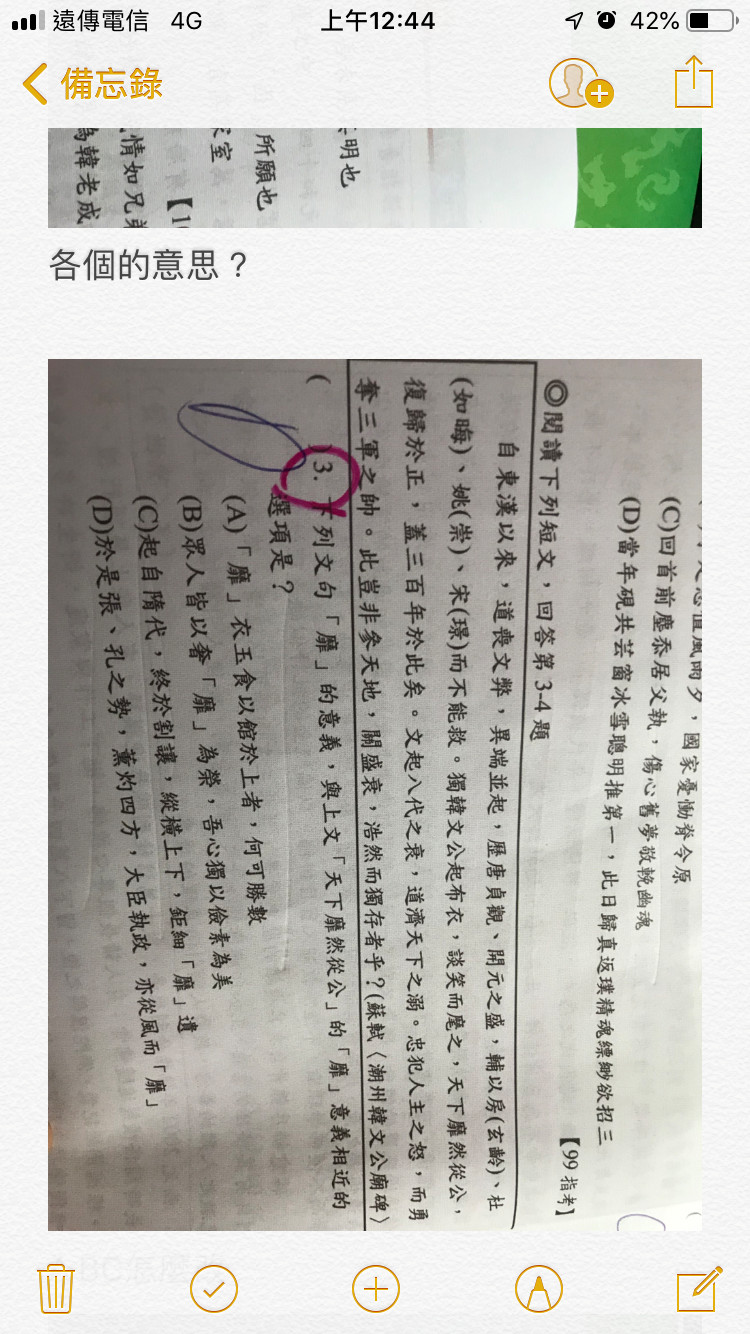 遠傳電信 4G 上午12:44 42%
備忘錄
明也
所願也
室
【1
情如兄弟
為韓老成
各個的意思？
國家憂慟脊令原
(C)回首前塵忝居父執，傷心舊夢敬輓幽魂
(D)當年硯共芸窗冰雪聰明推第一，此日歸真返璞精魂縹緲欲招三
【99 指考】
◎閱讀下列短文，回答第 3-4 題
自東漢以來，道喪文弊，異端並起，歷唐貞觀、開元之盛，輔以房(玄齡)、杜
(如晦)、姚(崇)、宋(璟)而不能救。獨韓文公起布衣，談笑而麾之，天下靡然從公，
復歸於正，蓋三百年於此矣。文起八代之衰，道濟天下之溺。忠犯人主之怒，而勇
奪三軍之帥。此豈非參天地，關盛衰，浩然而獨存者乎？(蘇軾〈潮州韓文公廟碑〉
( 3. 下列文句「靡」的意義，與上文「天下靡然從公」的「靡」意義相近的
選項是？
(A)「靡」衣玉食以館於上者，何可勝數
(B)眾人皆以奢「靡」為榮，吾心獨以儉素為美
(C)起自隋代，終於割讓，縱橫上下，鉅細「靡」遺
(D)於是張、孔之勢，薰灼四方，大臣執政，亦從風而「靡」